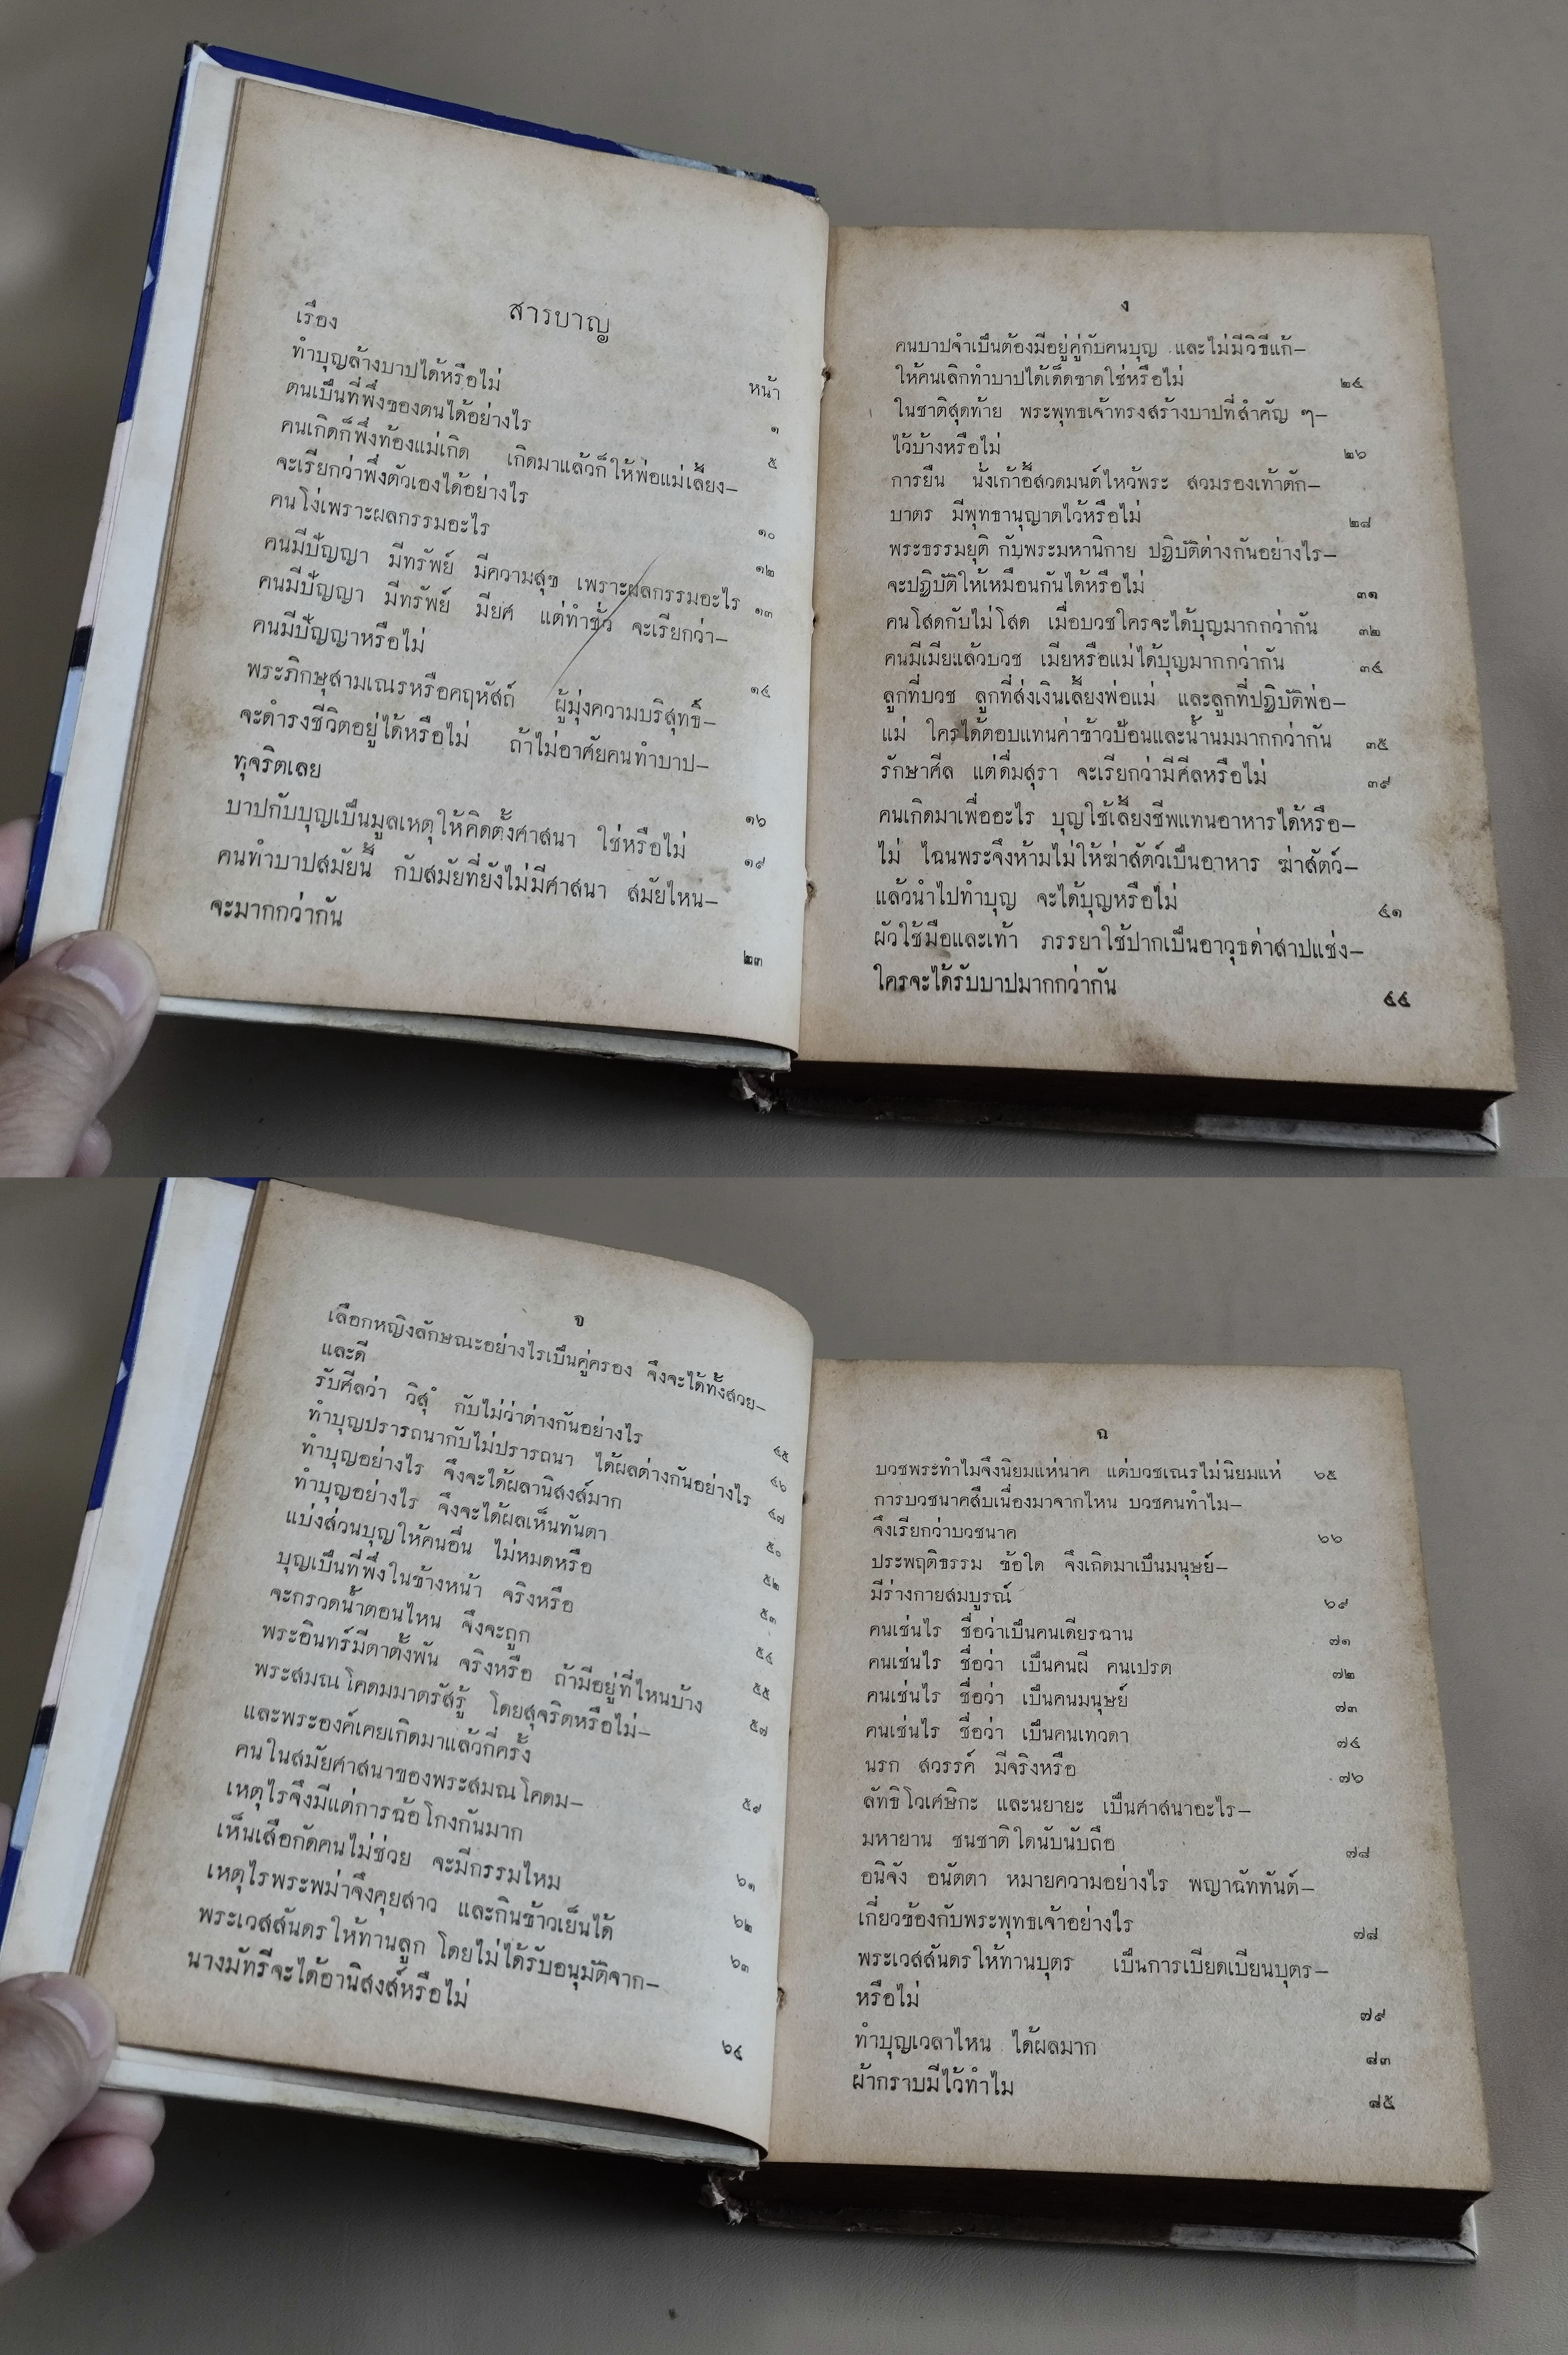 สารบาญ
เรื่อง หน้า
ทำบุญล้างบาปได้หรือไม่ ๑
ตนเป็นที่พึ่งของตนได้อย่างไร ๕
คนเกิดก็พึ่งท้องแม่เกิด เกิดมาแล้วก็ให้พ่อแม่เลี้ยง–
จะเรียกว่าพึ่งตัวเองได้อย่างไร ๑๐
คนโง่เพราะผลกรรมอะไร ๑๒
คนมีปัญญา มีทรัพย์ มีความสุข เพราะผลกรรมอะไร ๑๓
คนมีปัญญา มีทรัพย์ มียศ แต่ทำชั่ว จะเรียกว่า–
คนมีปัญญาหรือไม่ ๑๔
พระภิกษุสามเณรหรือคฤหัสถ์ ผู้มุ่งความบริสุทธิ์–
จะดำรงชีวิตอยู่ได้หรือไม่ ถ้าไม่อาศัยคนทำบาป–
ทุจริตเลย ๑๖
บาปกับบุญเป็นมูลเหตุให้คิดตั้งศาสนา ใช่หรือไม่ ๑๙
คนทำบาปสมัยนี้ กับสมัยที่ยังไม่มีศาสนา สมัยไหน–
จะมากกว่ากัน ๒๓
ง
คนบาปจำเป็นต้องมีอยู่คู่กับคนบุญ และไม่มีวิธีแก้–
ให้คนเลิกทำบาปได้เด็ดขาดใช่หรือไม่ ๒๔
ในชาติสุดท้าย พระพุทธเจ้าทรงสร้างบาปที่สำคัญ ๆ–
ไว้บ้างหรือไม่ ๒๖
การยืน นั่งเก้าอี้สวดมนต์ไหว้พระ สวมรองเท้าตัก–
บาตร มีพุทธานุญาตไว้หรือไม่ ๒๘
พระธรรมยุติ กับพระมหานิกาย ปฏิบัติต่างกันอย่างไร–
จะปฏิบัติให้เหมือนกันได้หรือไม่ ๓๑
คนโสดกับไม่โสด เมื่อบวชใครจะได้บุญมากกว่ากัน ๓๒
คนมีเมียแล้วบวช เมียหรือแม่ได้บุญมากกว่ากัน ๓๔
ลูกที่บวช ลูกที่ส่งเงินเลี้ยงพ่อแม่ และลูกที่ปฏิบัติพ่อ–
แม่ ใครได้ตอบแทนค่าข้าวป้อนและน้ำนมมากกว่ากัน ๓๕
รักษาศีล แต่ดื่มสุรา จะเรียกว่ามีศีลหรือไม่ ๓๙
คนเกิดมาเพื่ออะไร บุญใช้เลี้ยงชีพแทนอาหารได้หรือ–
ไม่ ไฉนพระจึงห้ามไม่ให้ฆ่าสัตว์เป็นอาหาร ฆ่าสัตว์–
แล้วนำไปทำบุญ จะได้บุญหรือไม่ ๔๑
ผัวใช้มือและเท้า ภรรยาใช้ปากเป็นอาวุธด่าสาปแช่ง–
ใครจะได้รับบาปมากกว่ากัน ๔๔
จ
เลือกหญิงลักษณะอย่างไรเป็นคู่ครอง จึงจะได้ทั้งสวย–
และดี ๔๕
รับศีลว่า วิสุํ กับไม่ว่าต่างกันอย่างไร ๔๖
ทำบุญปรารถนากับไม่ปรารถนา ได้ผลต่างกันอย่างไร ๔๗
ทำบุญอย่างไร จึงจะได้ผลานิสงส์มาก ๕๐
ทำบุญอย่างไร จึงจะได้ผลเห็นทันตา ๕๒
แบ่งส่วนบุญให้คนอื่น ไม่หมดหรือ ๕๓
บุญเป็นที่พึ่งในข้างหน้า จริงหรือ ๕๔
จะกรวดน้ำตอนไหน จึงจะถูก ๕๕
พระอินทร์มีตาตั้งพัน จริงหรือ ถ้ามีอยู่ที่ไหนบ้าง ๕๗
พระสมณโคดมมาตรัสรู้ โดยสุจริตหรือไม่–
และพระองค์เคยเกิดมาแล้วกี่ครั้ง ๕๙
คนในสมัยศาสนาของพระสมณโคดม–
เหตุไรจึงมีแต่การฉ้อโกงกันมาก ๖๑
เห็นเสือกัดคนไม่ช่วย จะมีกรรมไหม ๖๒
เหตุไรพระพม่าจึงคุยสาว และกินข้าวเย็นได้ ๖๓
พระเวสสันดรให้ทานลูก โดยไม่ได้รับอนุมัติจาก–
นางมัทรีจะได้อานิสงส์หรือไม่ ๖๔
ฉ
บวชพระทำไมจึงนิยมแห่นาค แต่บวชเณรไม่นิยมแห่ ๖๕
การบวชนาคสืบเนื่องมาจากไหน บวชคนทำไม–
จึงเรียกว่าบวชนาค ๖๖
ประพฤติธรรม ข้อใด จึงเกิดมาเป็นมนุษย์–
มีร่างกายสมบูรณ์ ๖๙
คนเช่นไร ชื่อว่าเป็นคนเดียรฉาน ๗๑
คนเช่นไร ชื่อว่า เป็นคนผี คนเปรต ๗๒
คนเช่นไร ชื่อว่า เป็นคนมนุษย์ ๗๓
คนเช่นไร ชื่อว่า เป็นคนเทวดา ๗๔
นรก สวรรค์ มีจริงหรือ ๗๖
ลัทธิโวเศษิกะ และนยายะ เป็นศาสนาอะไร–
มหายาน ชนชาติใดนับนับถือ ๗๘
อนิจัง อนัตตา หมายความอย่างไร พญาฉัททันต์–
เกี่ยวข้องกับพระพุทธเจ้าอย่างไร ๗๘
พระเวสสันดรให้ทานบุตร เป็นการเบียดเบียนบุตร–
หรือไม่ ๗๙
ทำบุญเวลาไหน ได้ผลมาก ๘๓
ผ้ากราบมีไว้ทำไม ๘๕